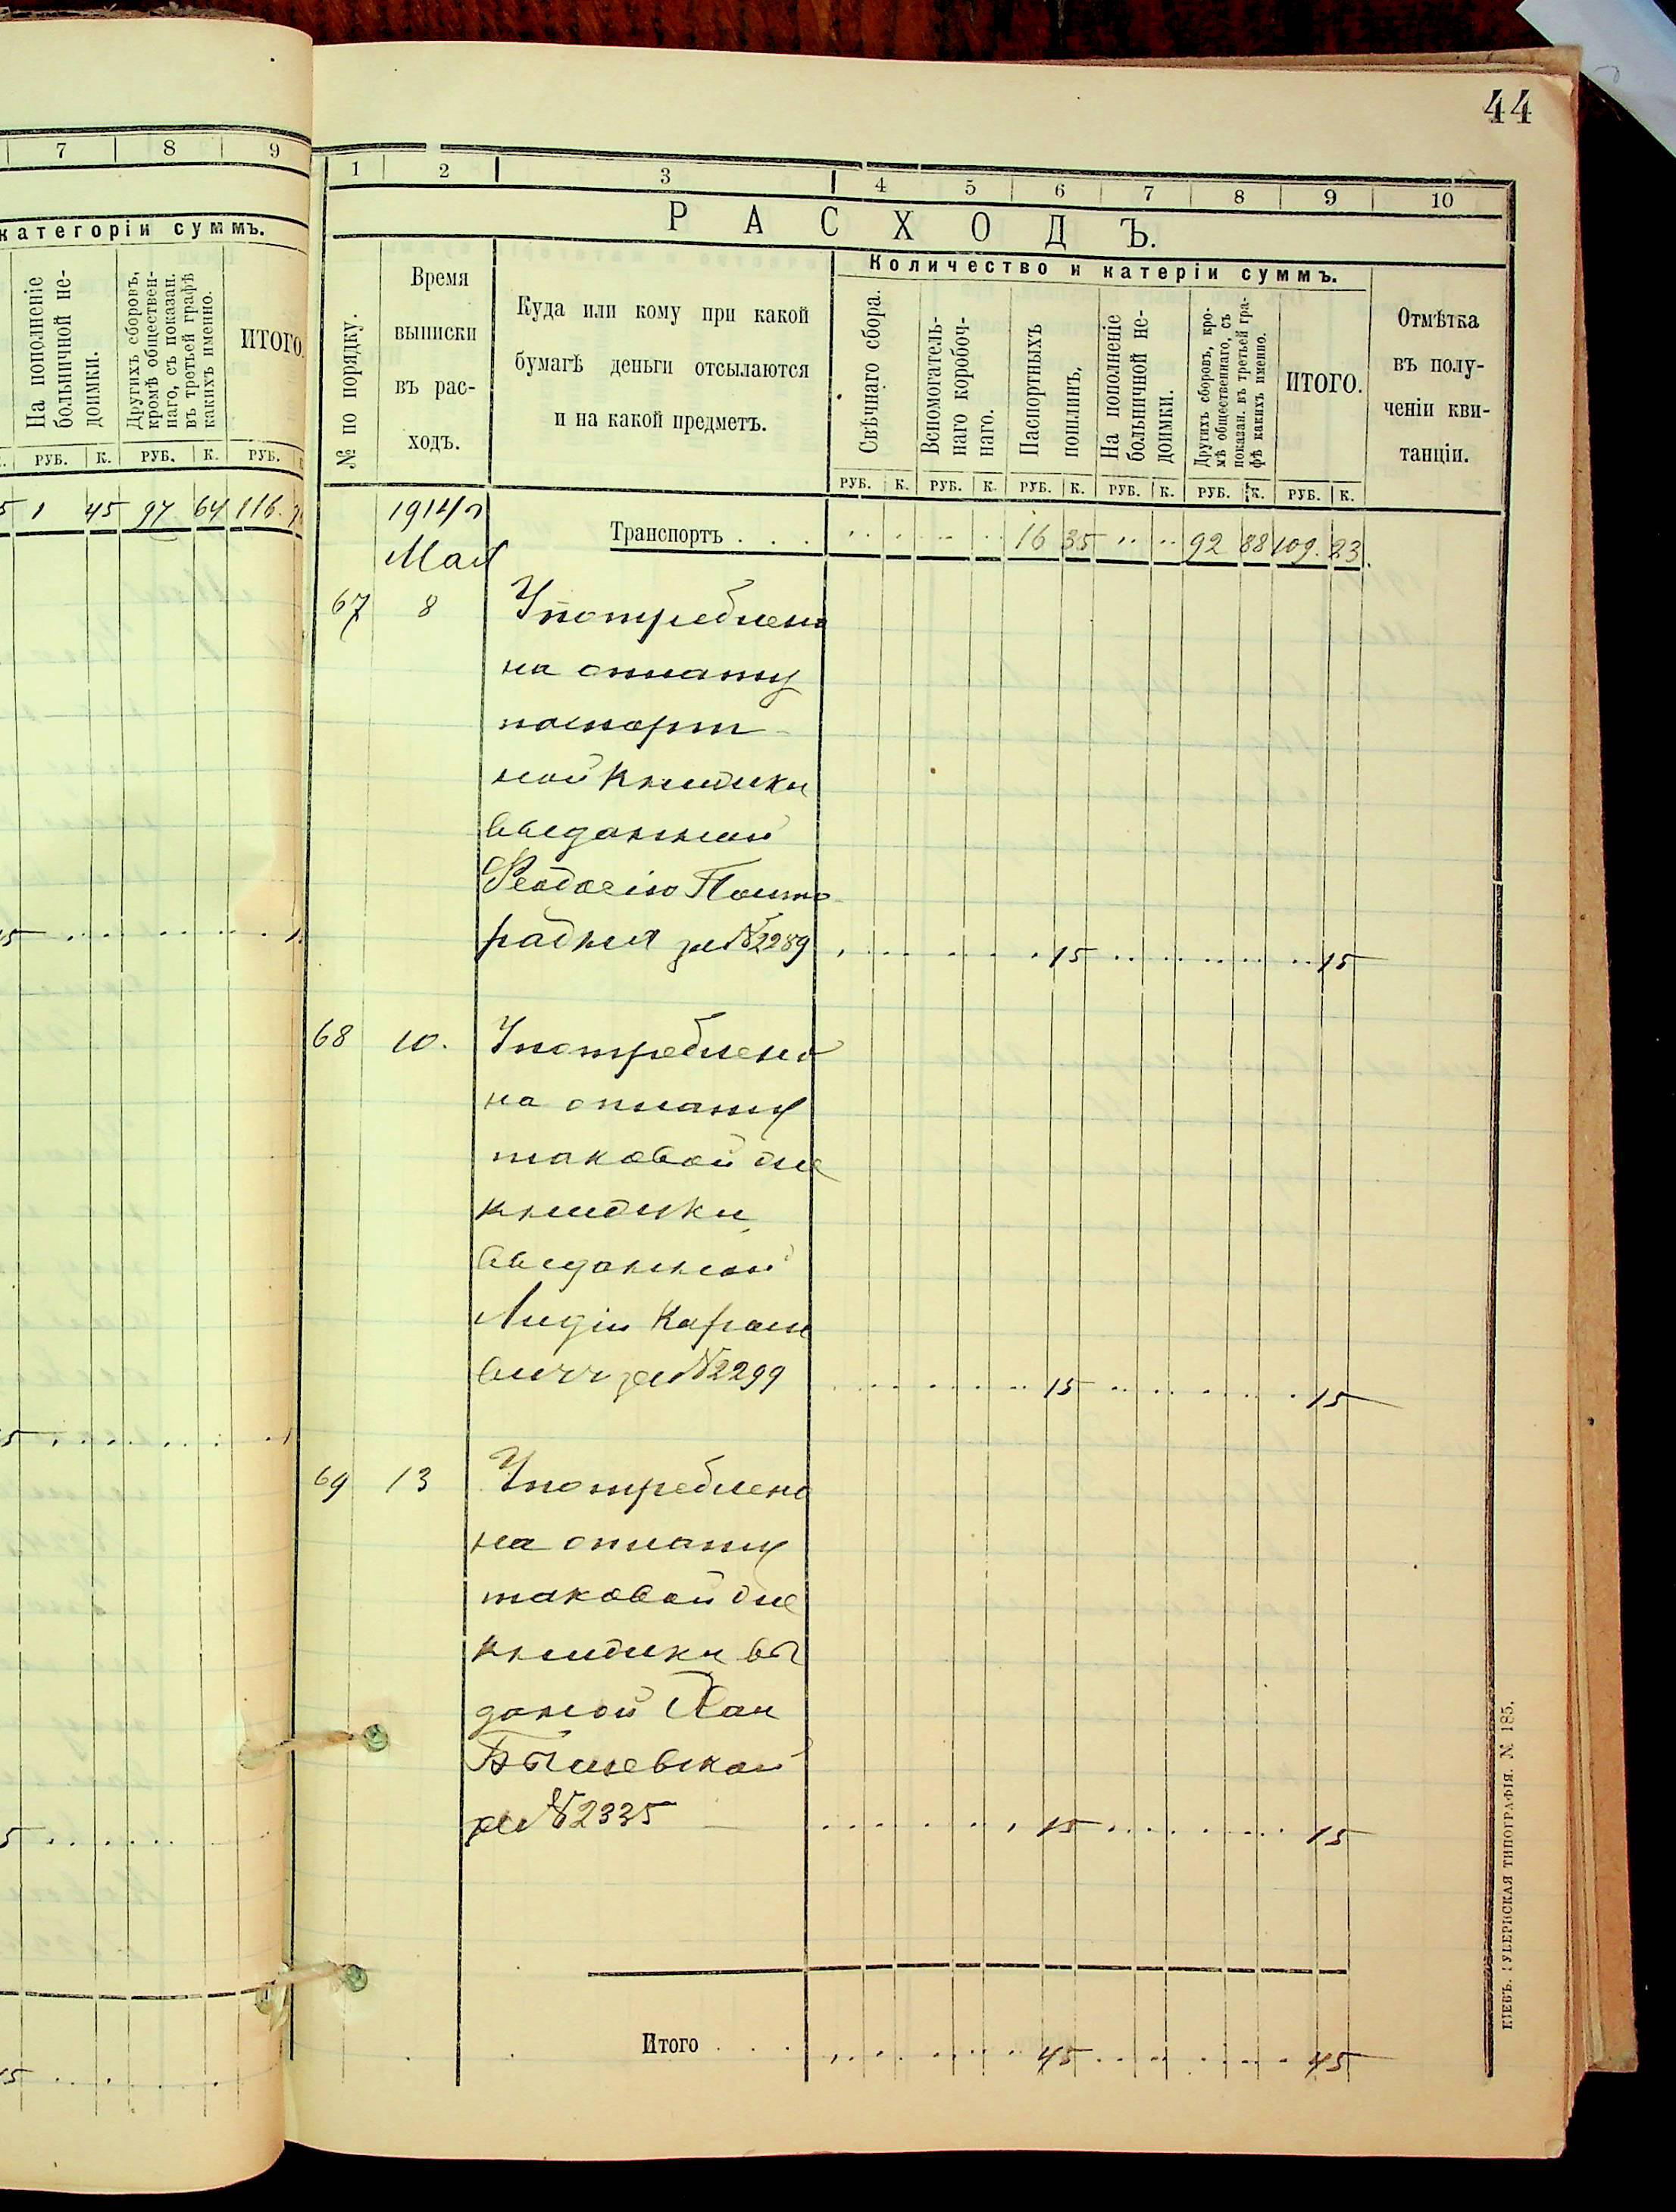 44
7 8 9
категоріи суммъ.
На пополненіе
больничной не-
доимки.
Другихъ сборовъ,
кромѣ обществен-
наго, съ показан.
въ третьей графѣ
какихъ именно.
ИТОГО.
РУБ. К. РУБ. К. РУБ.
5 1 45 97 64 116.
1 2 3 4 5 6 7 8 9 10
РАСХОДЪ.
№ по порядку.
Время
выписки
въ рас-
ходъ.
Куда или кому при какой
бумагѣ деньги отсылаются
и на какой предметъ.
Количество и катеріи суммъ.
Свѣчнаго сбора.
Вспомогатель-
наго коробоч-
наго.
Паспортныхъ
пошлинъ.
На пополненіе
больничной не-
доимки.
Другихъ сборовъ, кро-
мѣ общественнаго, съ
показан. въ третьей гра-
фѣ какихъ именно.
ИТОГО.
Отмѣтка
въ полу-
ченіи кви-
танціи.
РУБ. К. РУБ. К. РУБ. К. РУБ. К. РУБ. К. РУБ. К.
1914 г
Транспортъ . . . 16 35 92 88 109. 23.
Мая
67 8 Употреблено
на оплату
паспорт-
ной книжки
выданной
Феодосію
за №2289 15 15
68 10. Употреблено
на оплату
таковой же
книжки
выданной
Лидіи
за №2299 15 15
69 13 Употреблено
на оплату
таковой же
книжки вы
даной
за №2335 15 15
Итого . . . 45 45
КІЕВЪ. ГУБЕРНСКАЯ ТИПОГРАФІЯ. № 185.